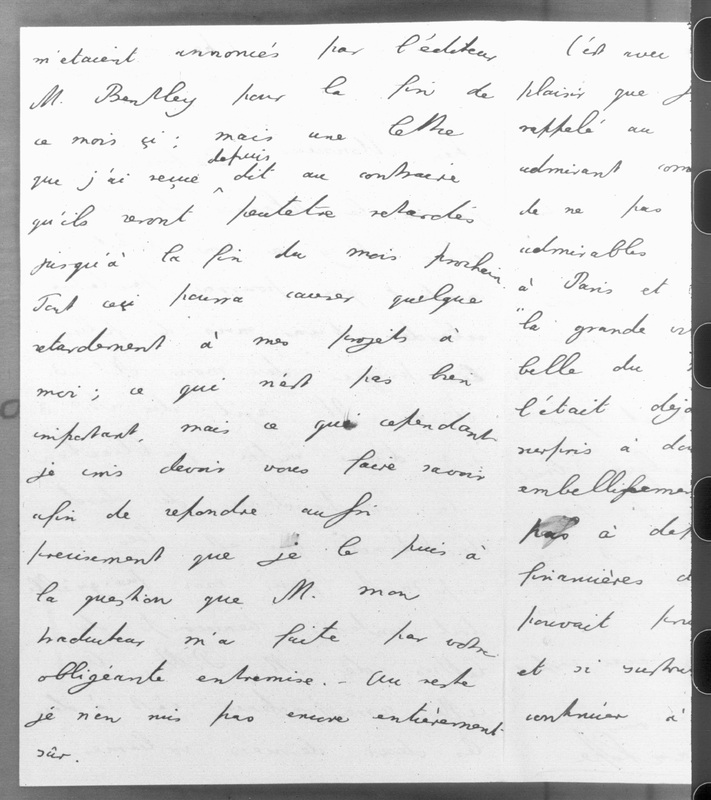 m'etaient annoncés par l'éditeur
M. Bentley pour la fin de
ce mois çi ; mais une lettre
depuis
que j'ai reçue ^ dit au contraire
qu'ils seront peutetre retardés
jusqu'à la fin du mois prochain.
Tout ceçi pourra causer quelque
retardement à mes projets à
moi ; ce qui n'est pas bien
important, mais ce que cependant
je crois devoir vous faire savoir
afin de repondre aussi
precisement que je le puis à
la question que M. mon
traducteur m'a faite par votre
obligéante entremise. – Au reste
je n'en suis pas encore entièrement
sûr.
C'est avec
plaisir que j
rappelé au
admirant com
de ne pas
admirables
à Paris et
"la grande v
belle du
l'était dejà
surpris à do
embellissemen
pas à de
financières d
pouvait pou
et si surtou
continuer à